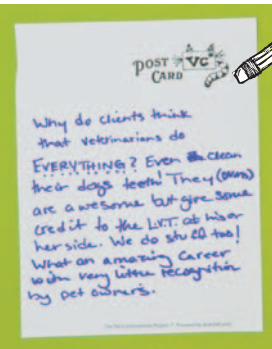 POST CARD
VC
Why do clients think
that veterinarians do
EVERYTHING? Even clean
their dogs teeth! They (DVMs)
are awesome but give some
credit to the L.V.T. at his or
her side. We do stuff too!
What an amazing career
with very little recognition
by pet owners.